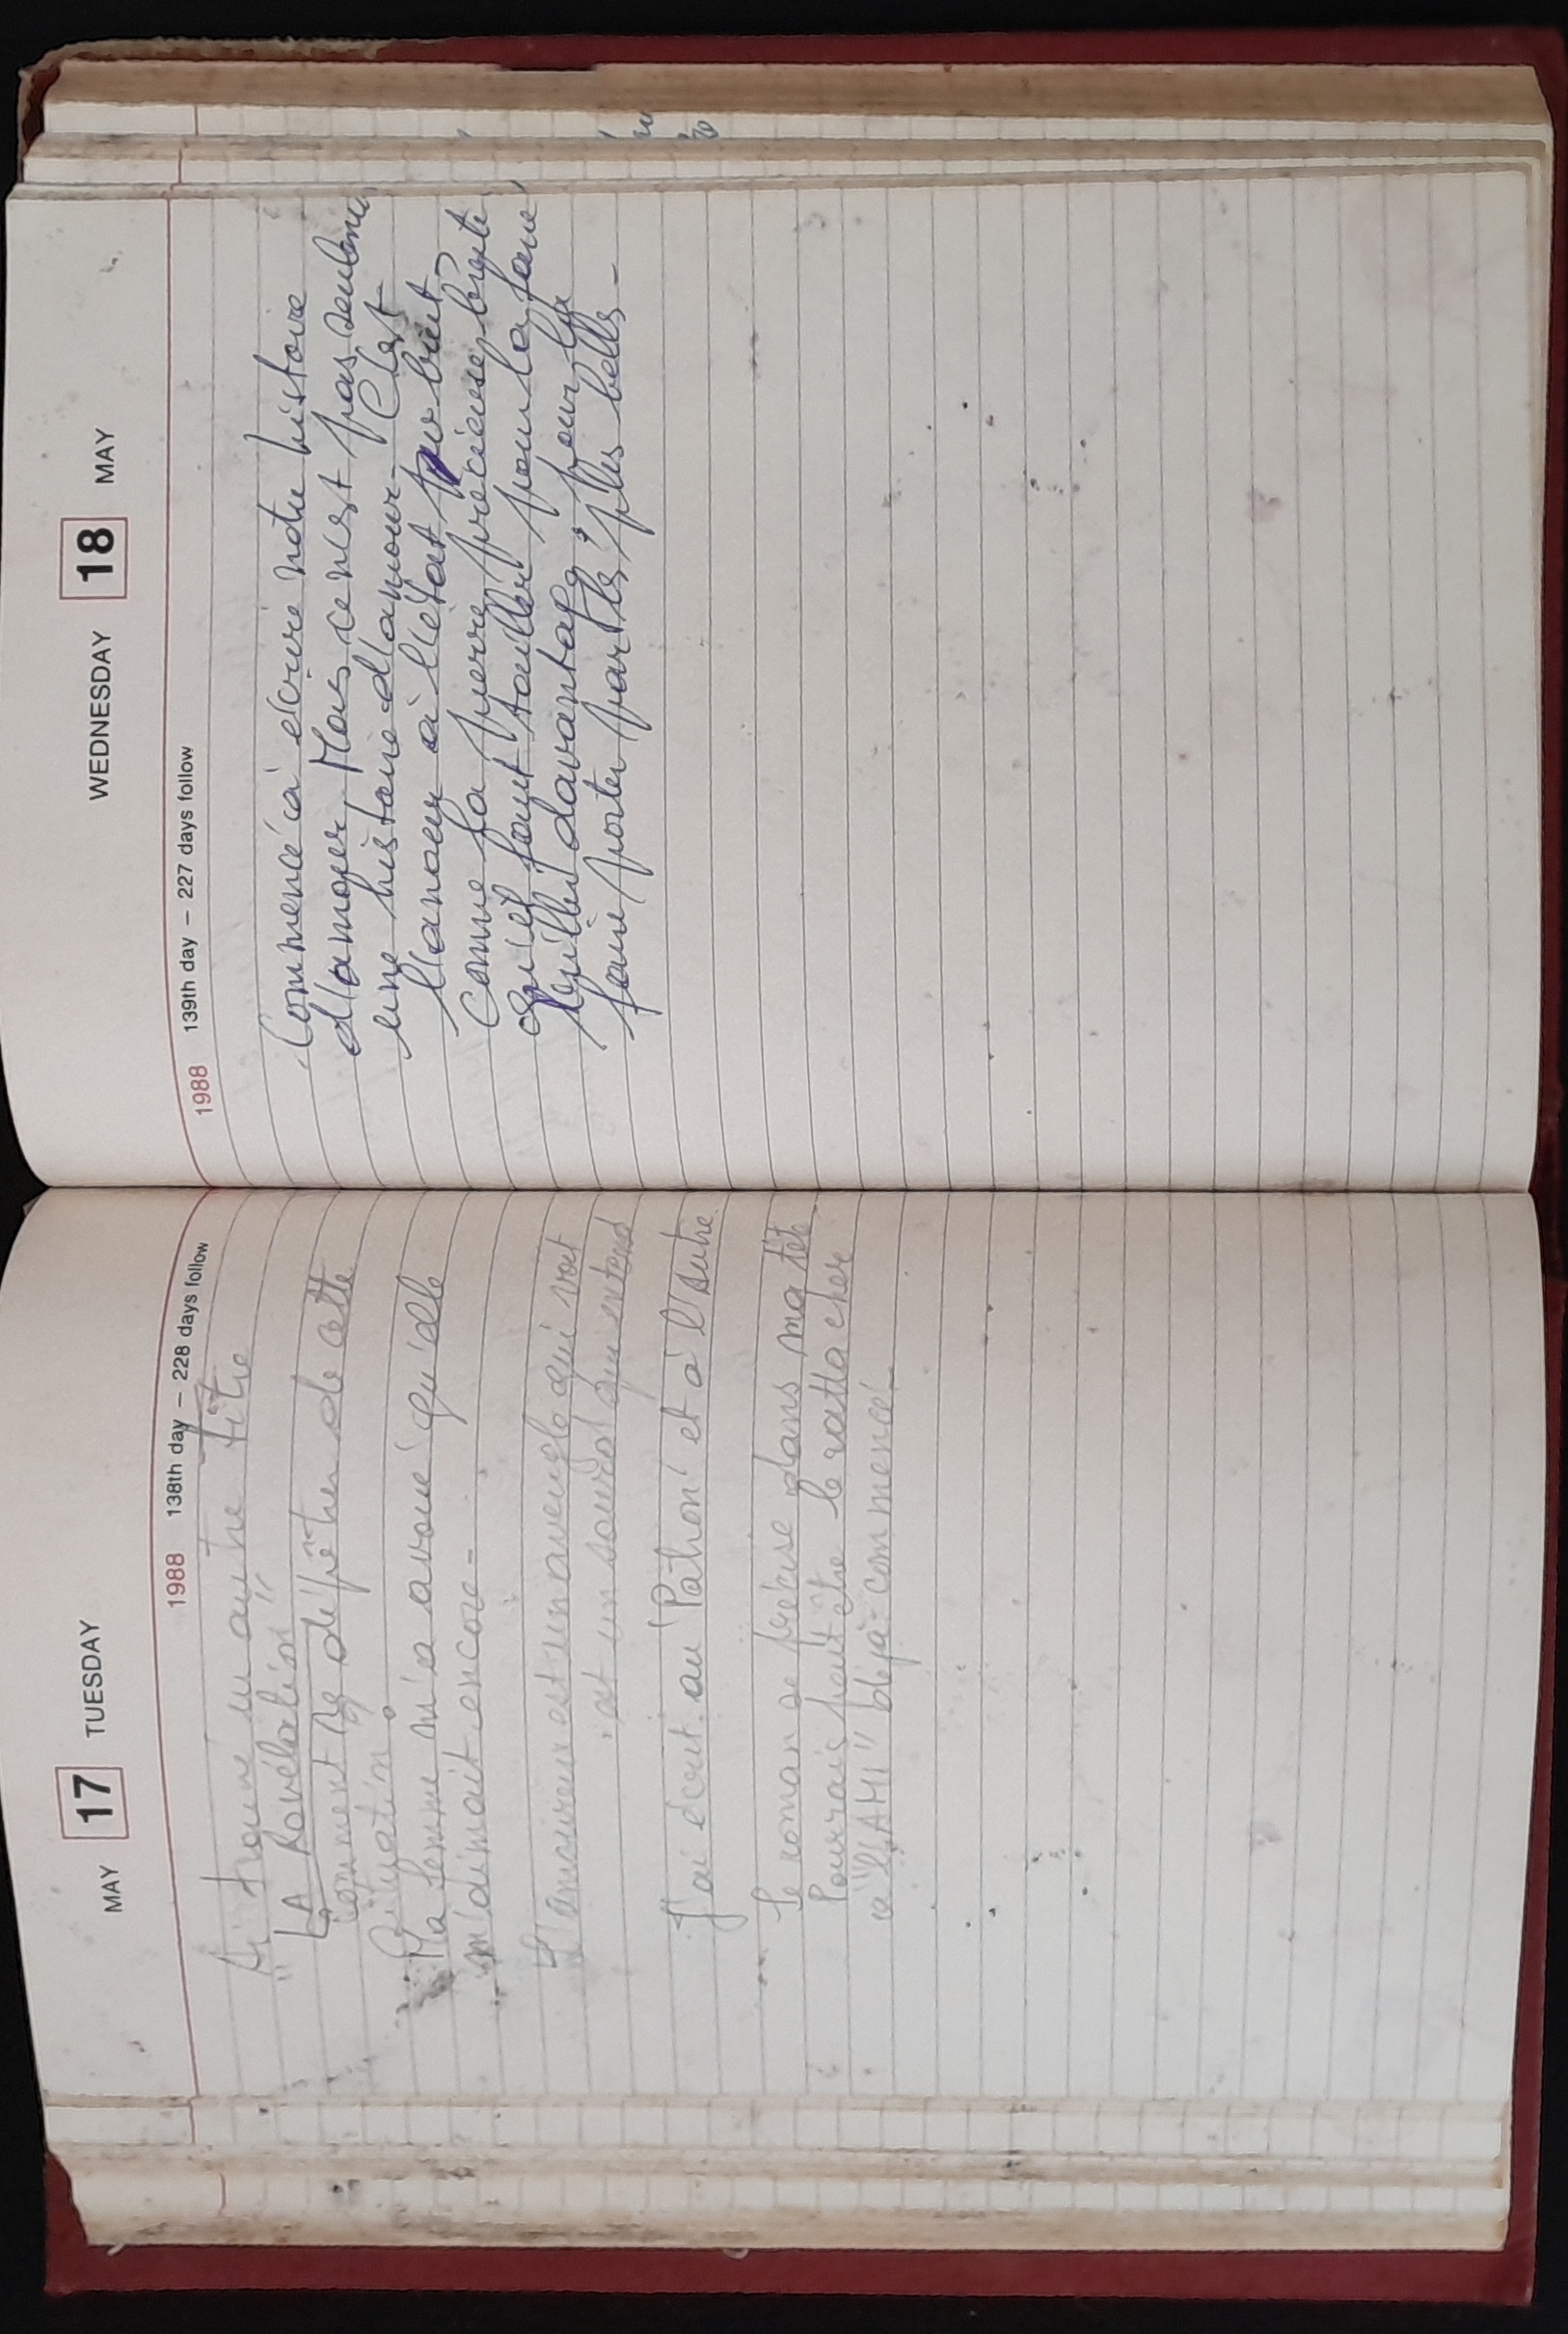 MAY 17 TUESDAY
1988 138th day – 228 days follow
Ai trouvé un autre titre
"LA Révélation"
Comment se dépêtrer de cette
Situation.
Ma femme m'a avoué qu'elle
m'aimait encore -
L'amoureux est un aveugle qui voit
et un sourd qui entend
J'ai écrit au Pathon' et à l'autre
Le roman se précise dans ma tête
Pourrais peut être le rattacher
à "L'AMI" déjà commencé -
WEDNESDAY 18 MAY
1988 139th day – 227 days follow
Commencé à écrire notre histoire
d'amour, Mais ce n'est pas seulement
une histoire d'amour - C'est
l'amour à l'état brut
Comme la pierre précieuse brute
Qu'il faut tailler pour la faire
briller davantage, pour la
faire porter par les plus belles -